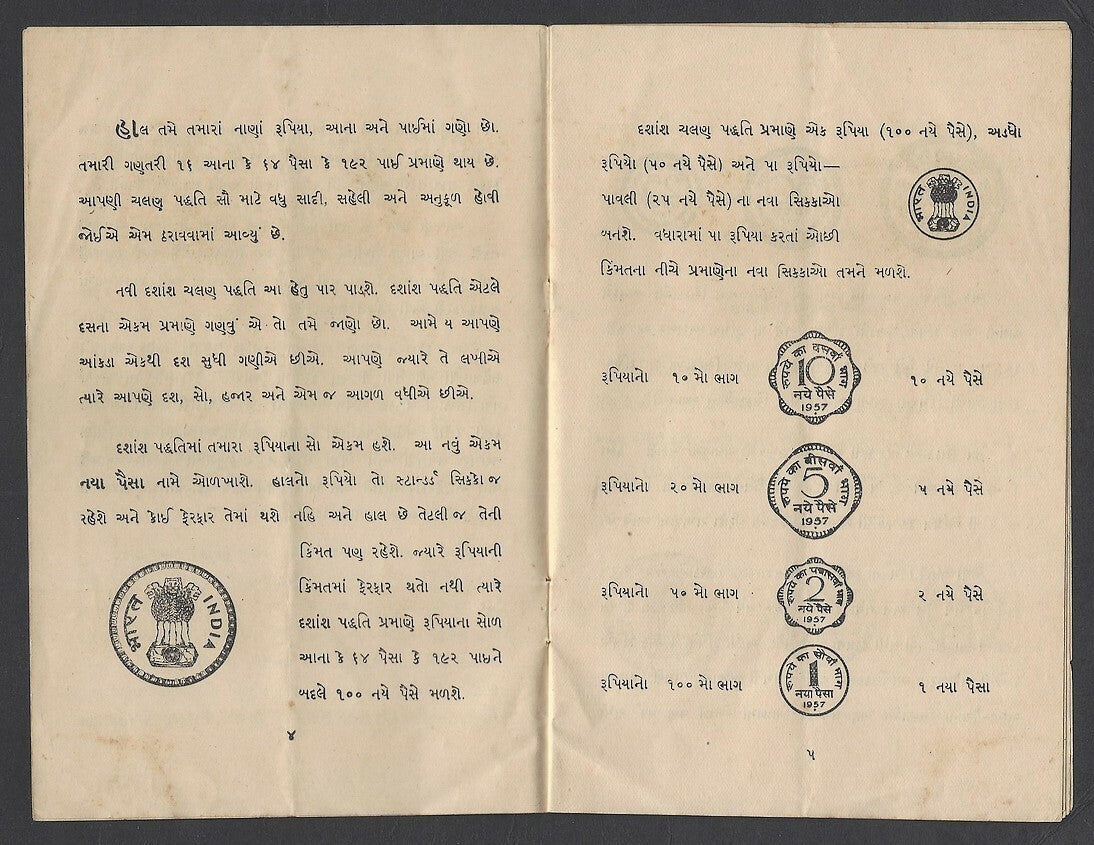 હાલ તમે તમારાં નાણાં રૂપિયા, આના અને પાઈમાં ગણો છો.
તમારી ગણતરી ૧૬ આના કે ૬૪ પૈસા કે ૧૯૨ પાઈ પ્રમાણે થાય છે.
આપણી ચલણ પદ્ધતિ સૌ માટે વધુ સાદી, સહેલી અને અનુકૂળ હોવી
જોઈએ એમ ઠરાવવામાં આવ્યું છે.
નવી દશાંશ ચલણ પદ્ધતિ આ હેતુ પાર પાડશે. દશાંશ પદ્ધતિ એટલે
દસના એકમ પ્રમાણે ગણવું એ તો તમે જાણો છો. આમે ય આપણે
આંકડા એકથી દશ સુધી ગણીએ છીએ. આપણે જ્યારે તે લખીએ
ત્યારે આપણે દશ, સો, હજાર અને એમ જ આગળ વધીએ છીએ.
દશાંશ પદ્ધતિમાં તમારા રૂપિયાના સો એકમ હશે. આ નવું એકમ
નયા પૈસા નામે ઓળખાશે. હાલનો રૂપિયો તો સ્ટાન્ડર્ડ સિક્કો જ
રહેશે અને કોઈ ફેરફાર તેમાં થશે નહિ અને હાલ છે તેટલી જ તેની
કિંમત પણ રહેશે. જ્યારે રૂપિયાની
કિંમતમાં ફેરફાર થતો નથી ત્યારે
દશાંશ પદ્ધતિ પ્રમાણે રૂપિયાના સોળ
આના કે ૬૪ પૈસા કે ૧૯૨ પાઇને
બદલે ૧૦૦ નયે પૈસે મળશે.
भारत INDIA
૪
દશાંશ ચલણ પદ્ધતિ પ્રમાણે એક રૂપિયા (૧૦૦ નયે પૈસે), અડધો
રૂપિયો (૫૦ નયે પૈસે) અને પા રૂપિયો—
પાવલી (૨૫ નયે પૈસે) ના નવા સિક્કાઓ
બનશે. વધારામાં પા રૂપિયા કરતાં ઓછી
કિંમતના નીચે પ્રમાણેના નવા સિક્કાઓ તમને મળશે.
भारत INDIA
રૂપિયાનો ૧૦ મો ભાગ
रूपये का दसवाँ भाग
10
नये पैसे
1957
૧૦ નયે પૈસે
રૂપિયાનો ૨૦ મો ભાગ
रूपये का बीसवाँ भाग
5
नये पैसे
1957
૫ નયે પૈસે
રૂપિયાનો ૫૦ મો ભાગ
रूपये का पचासवाँ भाग
2
नये पैसे
1957
૨ નયે પૈસે
રૂપિયાનો ૧૦૦ મો ભાગ
रूपये का सौवाँ भाग
1
नया पैसा
1957
૧ નયા પૈસા
૫